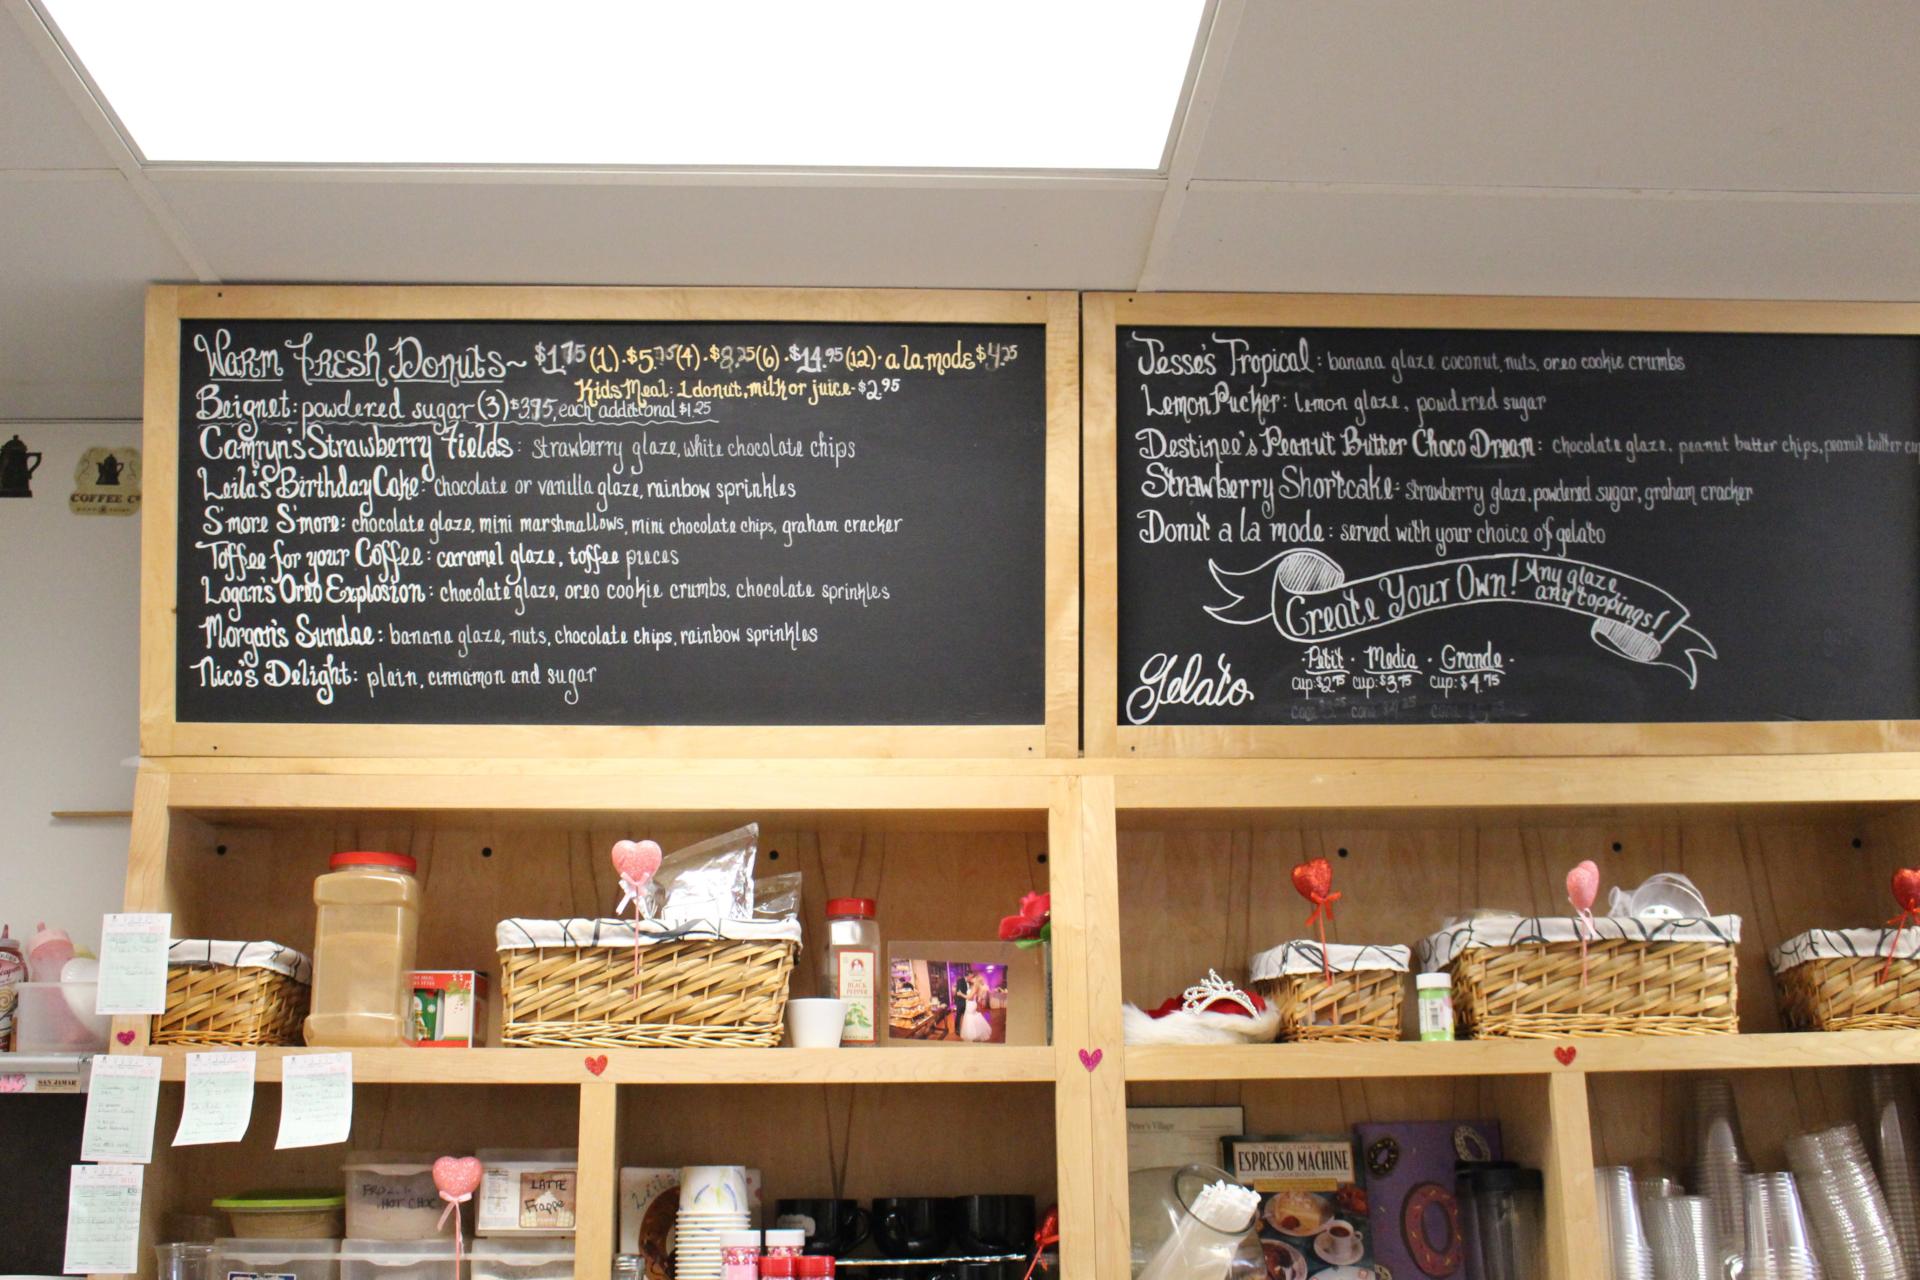 Warm Fresh Donuts~ $1.75 (1) · $5.75 (4) · $8.25 (6) · $14.95 (12) · a la mode $4.25
Kids Meal: 1 donut, milk or juice - $2.95
Beignet: powdered sugar (3) $3.95, each additional $1.25
Camryn's Strawberry Fields: strawberry glaze, white chocolate chips
Leila's Birthday Cake: chocolate or vanilla glaze, rainbow sprinkles
S'more S'more: chocolate glaze, mini marshmallows, mini chocolate chips, graham cracker
Toffee for your Coffee: caramel glaze, toffee pieces
Logan's Oreo Explosion: chocolate glaze, oreo cookie crumbs, chocolate sprinkles
Morgan's Sundae: banana glaze, nuts, chocolate chips, rainbow sprinkles
Nico's Delight: plain, cinnamon and sugar
Jesse's Tropical: banana glaze coconut, nuts, oreo cookie crumbs
Lemon Pucker: lemon glaze, powdered sugar
Destinee's Peanut Butter Choco Dream: chocolate glaze, peanut butter chips, peanut butter cup
Strawberry Shortcake: strawberry glaze, powdered sugar, graham cracker
Donut a la mode: served with your choice of gelato
Create Your Own! Any glaze,
any toppings!
Gelato
· Petit · Media · Grande ·
cup: $2.75 cup: $3.75 cup: $4.75
COFFEE CO
BLACK
PEPPER
SAN JAMAR
Peter's Village
THE ULTIMATE
ESPRESSO MACHINE
COOKBOOK
HOT CHOC
LATTE
Frappe
Leila